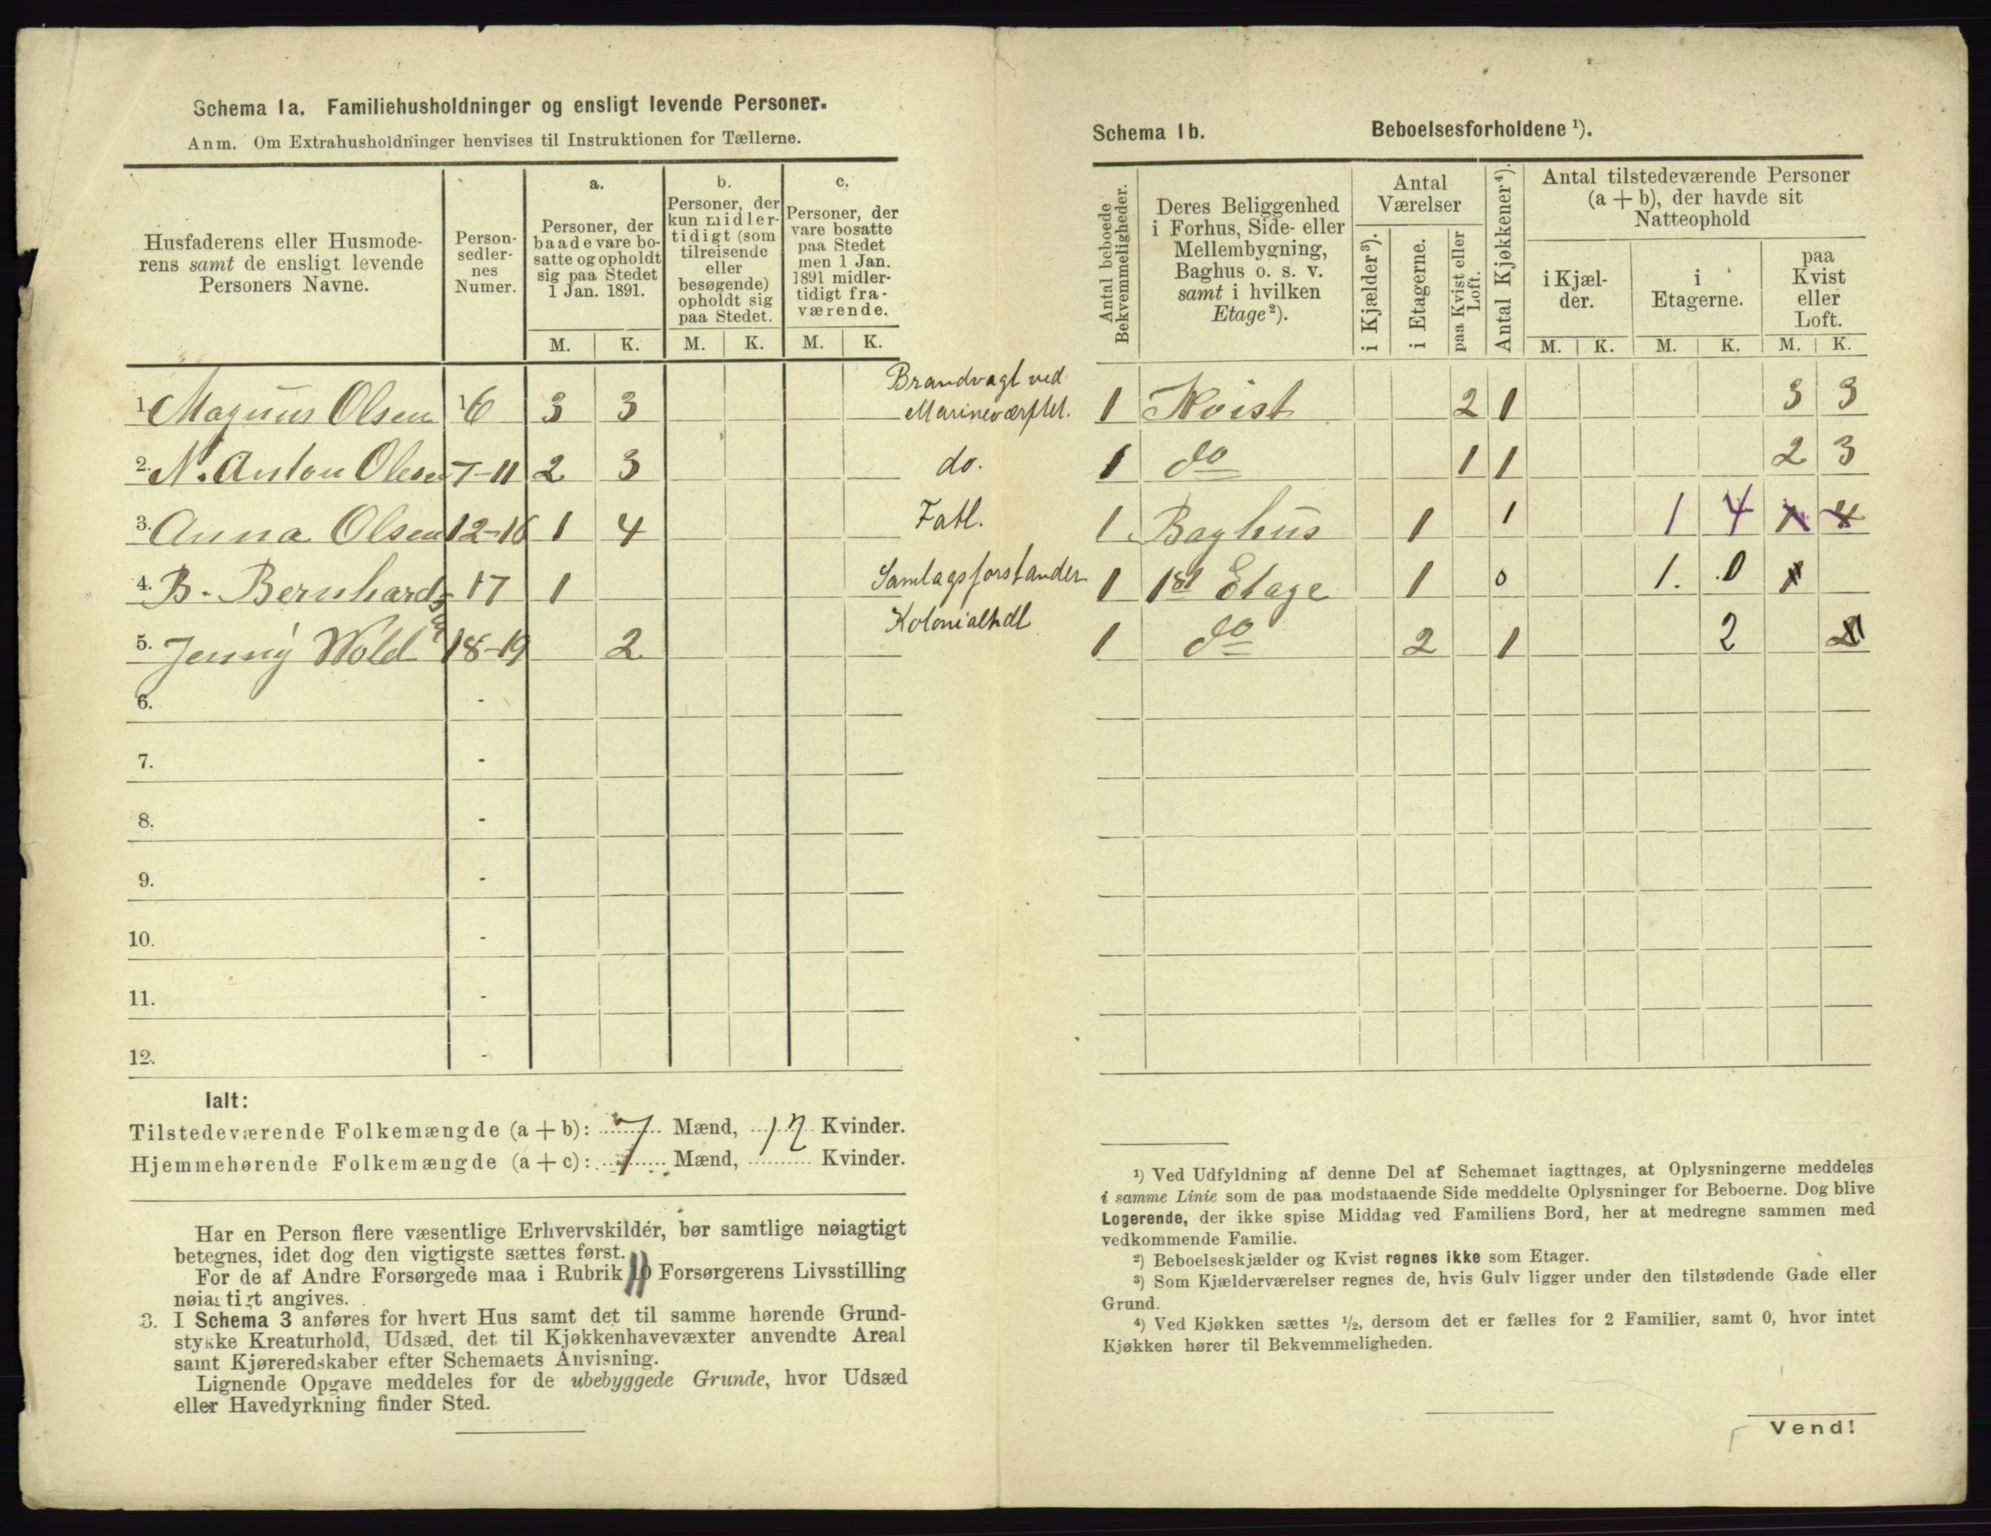 Schema 1a. Familiehusholdninger og ensligt levende Personer.
Anm. Om Extrahusholdninger henvises til Instruktionen for Tællerne.
Husfaderens eller Husmode-
rens samt de ensligt levende
Personers Navne.
Person-
sedler-
nes
Numer.
a.
Personer, der
baade vare bo-
satte og opholdt
sig paa Stedet
1 Jan. 1891.
b.
Personer, der
kun midler-
tidigt (som
tilreisende
eller
besøgende)
opholdt sig
paa Stedet.
c.
Personer, der
vare bosatte
paa Stedet
men 1 Jan.
1891 midler-
tidigt fra-
værende.
M. K. M. K. M. K.
1. Magnus Olsen 1-6 3 3 Brandvagt ved
Marineværftet.
2. N. Anton Olsen 7-11 2 3 do.
3. Anna Olsen 12-16 1 4 Fatl.
4. B. Bernhardsen 17 1 Samlagsforstander
5. Jenny Wold 18-19 2 Kolonialhdl
6. -
7. -
8. -
9. -
10. -
11. -
12. -
Ialt:
Tilstedeværende Folkemængde (a+b): 7 Mænd, 12 Kvinder.
Hjemmehørende Folkemængde (a+c): 7 Mænd, Kvinder.
Har en Person flere væsentlige Erhvervskilder, bør samtlige nøiagtigt
betegnes, idet dog den vigtigste sættes først.
For de af Andre Forsørgede maa i Rubrik 11 Forsørgerens Livsstilling
nøiagtigt angives.
3. I Schema 3 anføres for hvert Hus samt det til samme hørende Grund-
stykke Kreaturhold, Udsæd, det til Kjøkkenhavevæxter anvendte Areal
samt Kjøreredskaber efter Schemaets Anvisning.
Lignende Opgave meddeles for de ubebyggede Grunde, hvor Udsæd
eller Havedyrkning finder Sted.
Schema 1b. Beboelsesforholdene ¹).
Antal beboede
Bekvemmeligheder.
Deres Beliggenhed
i Forhus, Side- eller
Mellembygning,
Baghus o. s. v.
samt i hvilken
Etage²).
Antal
Værelser
i Kjælder³).
i Etagerne.
paa Kvist eller
Loft.
Antal Kjøkkener⁴).
Antal tilstedeværende Personer
(a + b), der havde sit
Natteophold
i Kjæl-
der.
i
Etagerne.
paa
Kvist
eller
Loft.
M. K. M. K. M. K.
1 Kvist 2 1 3 3
1 do 1 1 2 3
1 Baghus 1 1 1 4 1 4
1 1st Etage 1 0 1. 0 1
1 do 2 1 2 2
¹) Ved Udfyldning af denne Del af Schemaet iagttages, at Oplysningerne meddeles
i samme Linie som de paa modstaaende Side meddelte Oplysninger for Beboerne. Dog blive
Logerende, der ikke spise Middag ved Familiens Bord, her at medregne sammen med
vedkommende Familie.
²) Beboelseskjælder og Kvist regnes ikke som Etager.
³) Som Kjælderværelser regnes de, hvis Gulv ligger under den tilstødende Gade eller
Grund.
⁴) Ved Kjøkken sættes ¹/₂, dersom det er fælles for 2 Familier, samt 0, hvor intet
Kjøkken hører til Bekvemmeligheden.
Vend!